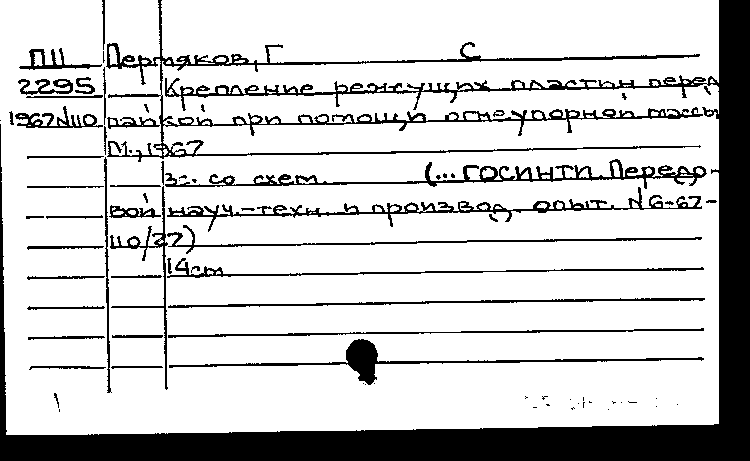 ПШ Пермяков, Г С
2295 Крепление режущих пластин перед
1967 N110 пайкой при помощи огнеупорной массы
М., 1967
3с. со схем. (... ГОСИНТИ. Передо-
вой науч.-техн. и производ. опыт. N 6-67-
110/27)
14см